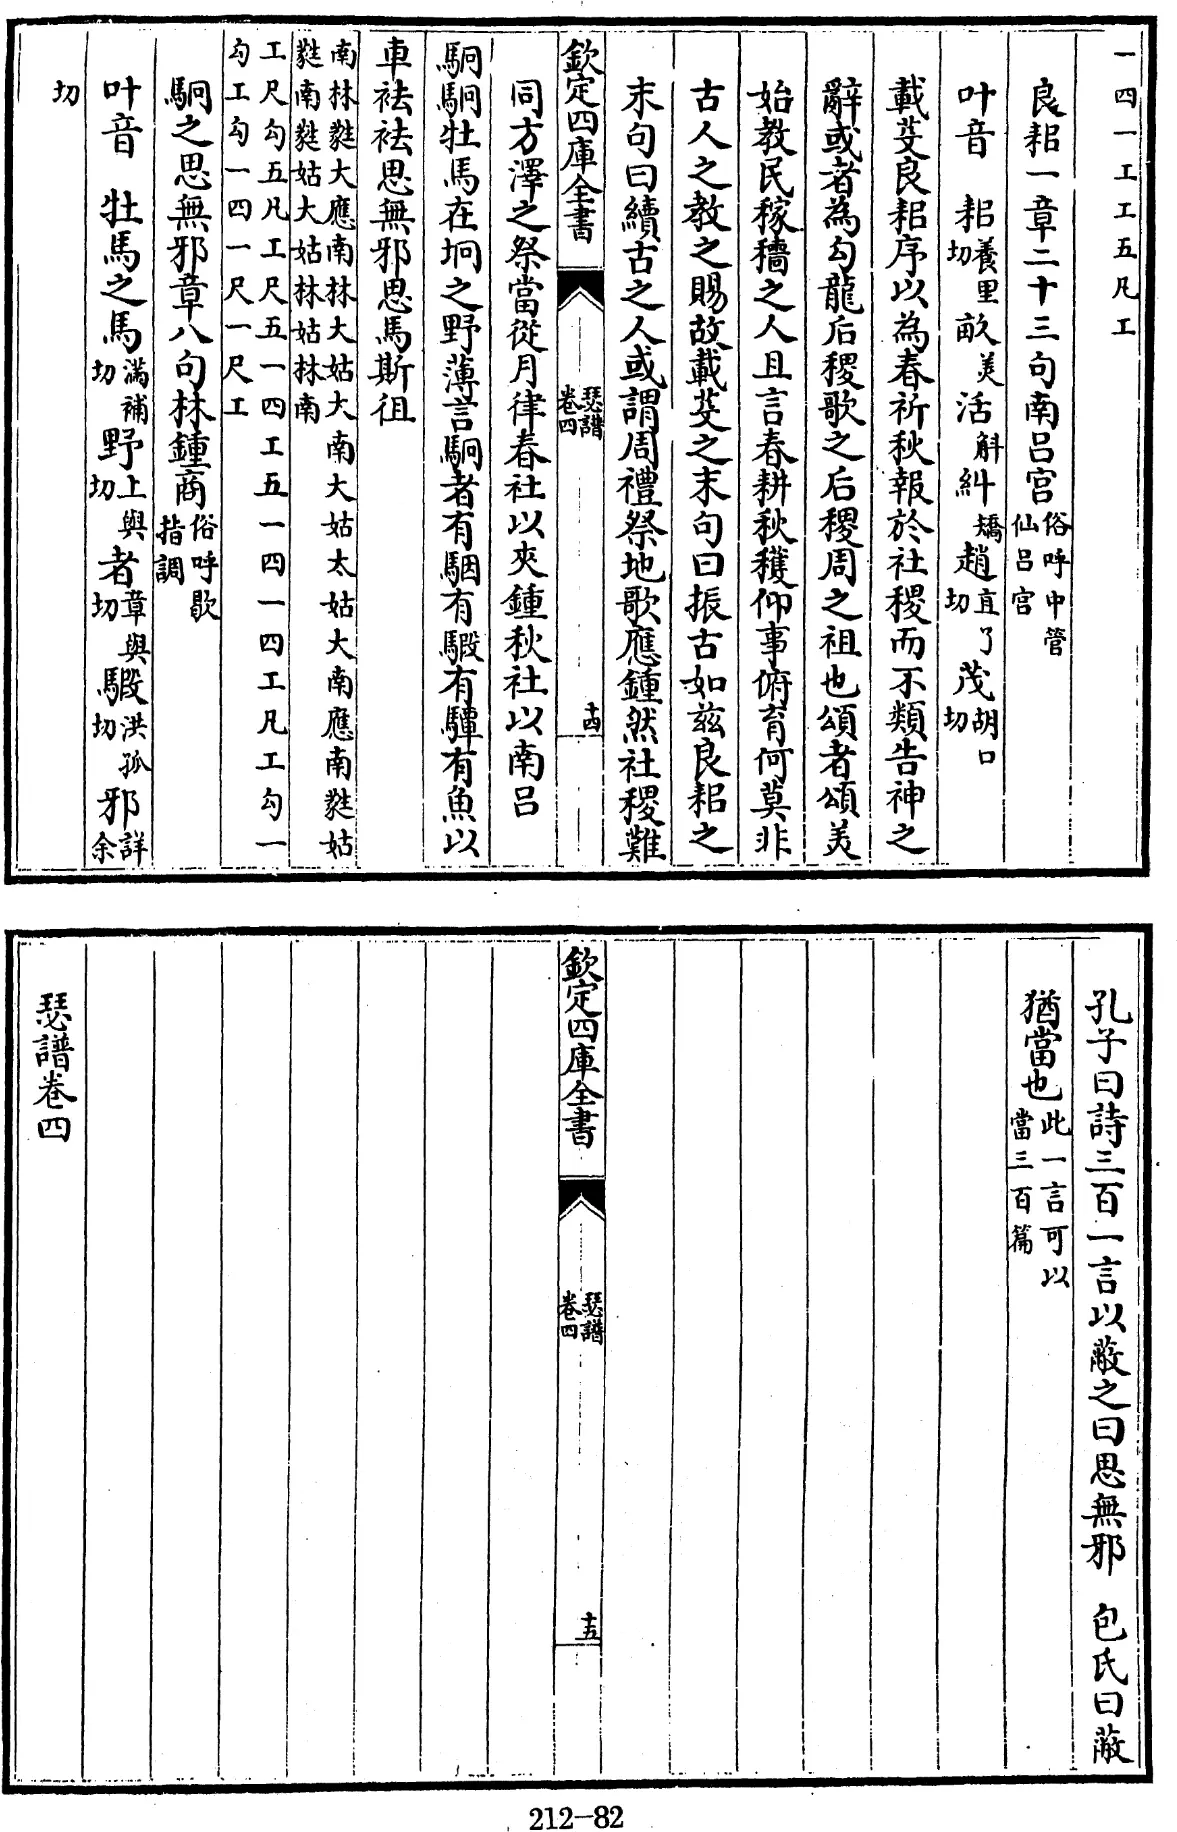 一四一工工五凡工
良耜一章二十三句南吕宫俗呼中管仙吕宫
叶音　耜養里切畝美活斛糾矯趙直了切茂胡口切
載芟良耜序以為春祈秋報於社稷而不類告神之
辭或者為勾龍后稷歌之后稷周之祖也頌者頌美
始教民稼穡之人且言春耕秋穫仰事俯育何莫非
古人之教之賜故載芟之末句曰振古如兹良耜之
末句曰續古之人或謂周禮祭地歌應鍾然社稷難
欽定四庫全書
瑟譜
卷四
十四
同方澤之祭當從月律春社以夾鍾秋社以南吕
駉駉牡馬在坰之野薄言駉者有駰有騢有驔有魚以
車祛祛思無邪思馬斯徂
南林蕤大應南林大姑大南大姑太姑大南應南蕤姑
蕤南蕤姑大姑林姑林南
工尺勾五凡工尺五一四工五一四一四工凡工勾一
勾工勾一四一尺一尺工
駉之思無邪章八句林鍾商俗呼歇指調
叶音　牡馬之馬滿補切野上與切者章與切騢洪孤切邪詳余
切
孔子曰詩三百一言以蔽之曰思無邪　包氏曰蔽
猶當也此一言可以當三百篇
欽定四庫全書
瑟譜
卷四
十五
瑟譜卷四
212-82